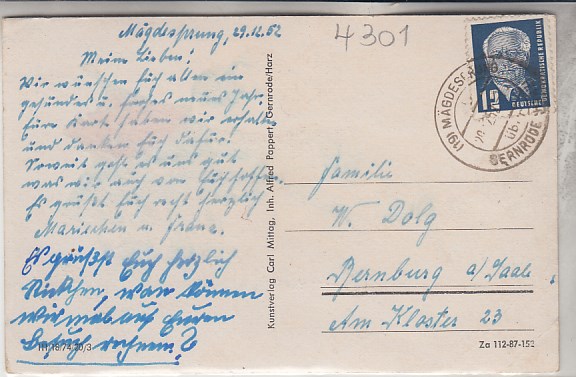 Mägdesprung, 29.12.52
Meine Lieben!
Wir wünschen Euch allen ein
gesundes u. frohes neues Jahr.
Eure Karte haben wir erhalten
und danken Euch dafür.
Soweit geht es uns gut
was wir auch von Euch hoffen.
Es grüßt Euch recht herzlich
Mariechen u. Franz.
Es grüßt Euch herzlich
wann können
wir mal auf Euren
Besuch rechnen?
III/18/74 20/3
Kunstverlag Carl Mittag, Inh. Alfred Pappert, Gernrode/Harz
4301
12
DEUTSCHE DEMOKRATISCHE REPUBLIK
(19) MÄGDESPRUNG
GERNRODE
Familie
W. Dolg
Bernburg a/Saale.
Am Kloster 23
Za 112-87-152